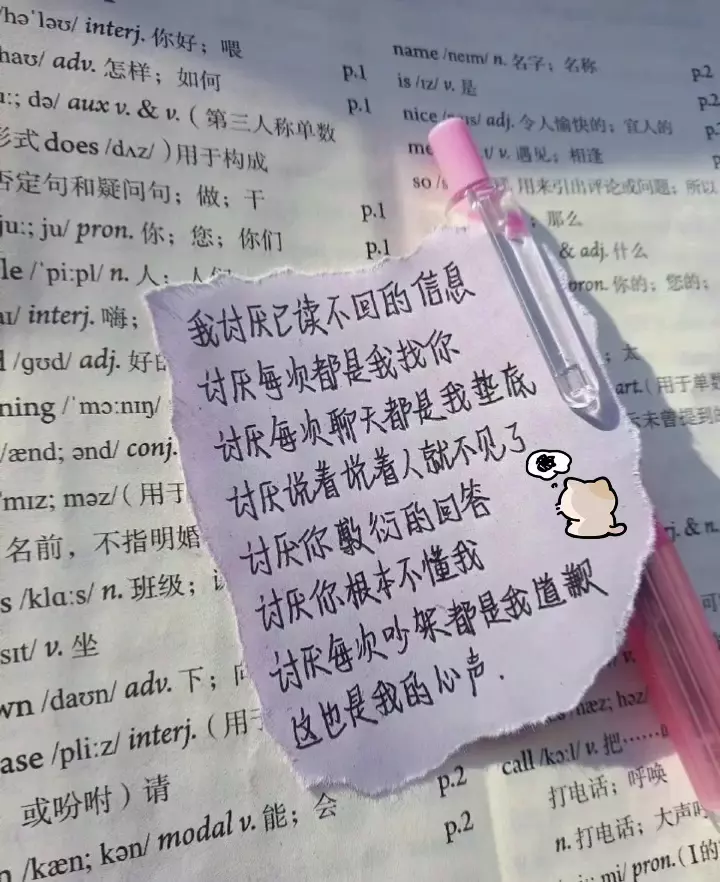 /hə'ləʊ/ interj. 你好；喂
p.1
haʊ/ adv. 怎样；如何
p.1
uː; də/ aux v. & v.（第三人称单数
形式 does /dʌz/）用于构成
否定句和疑问句；做；干
p.1
juː; ju/ pron. 你；您；你们
p.1
/'piːpl/ n. 人；人们
interj. 嗨；
/ɡʊd/ adj. 好的
ning /'mɔːnɪŋ/
/ænd; ənd/ conj.
mɪz; məz/（用于
名前，不指明婚
s /klɑːs/ n. 班级；
sɪt/ v. 坐
wn /daʊn/ adv. 下；向
ase /pliːz/ interj.（用于
或吩咐）请
p.2
n /kæn; kən/ modal v. 能；会
p.2
name /neɪm/ n. 名字；名称
p.2
is /ɪz/ v. 是
p.2
nice /naɪs/ adj. 令人愉快的；宜人的
me
v. 遇见；相逢
so /s
用来引出评论或问题；所以
那么
& adj. 什么
pron. 你的；您的；
太
art.（用于单数
未曾提到
我讨厌已读不回的信息
讨厌每次都是我找你
讨厌每次聊天都是我垫底
讨厌说着说着人就不见了
讨厌你敷衍的回答
讨厌你根本不懂我
讨厌每次吵架都是我道歉
这也是我的心声.
j. & n.
v.
hæz; həz/
call /kɔːl/ v. 把……
打电话；呼唤
n. 打电话；大声
mi/ pron.（I的